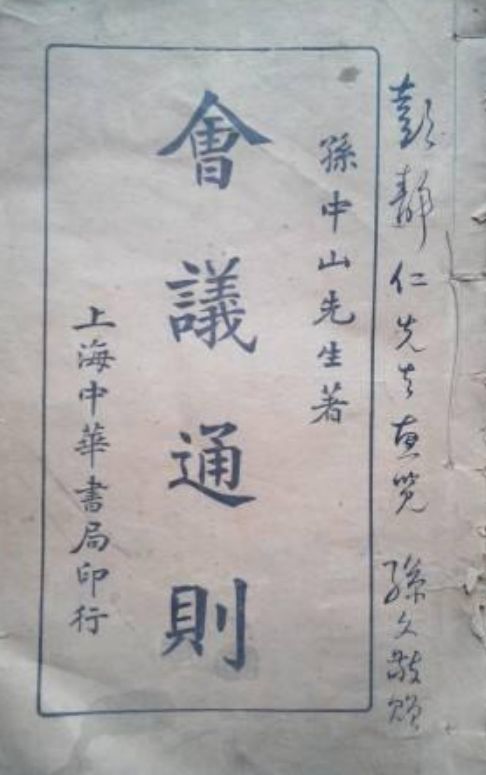 彭靜仁先生惠覽 孫文敬贈
孫中山先生著
會議通則
上海中華書局印行